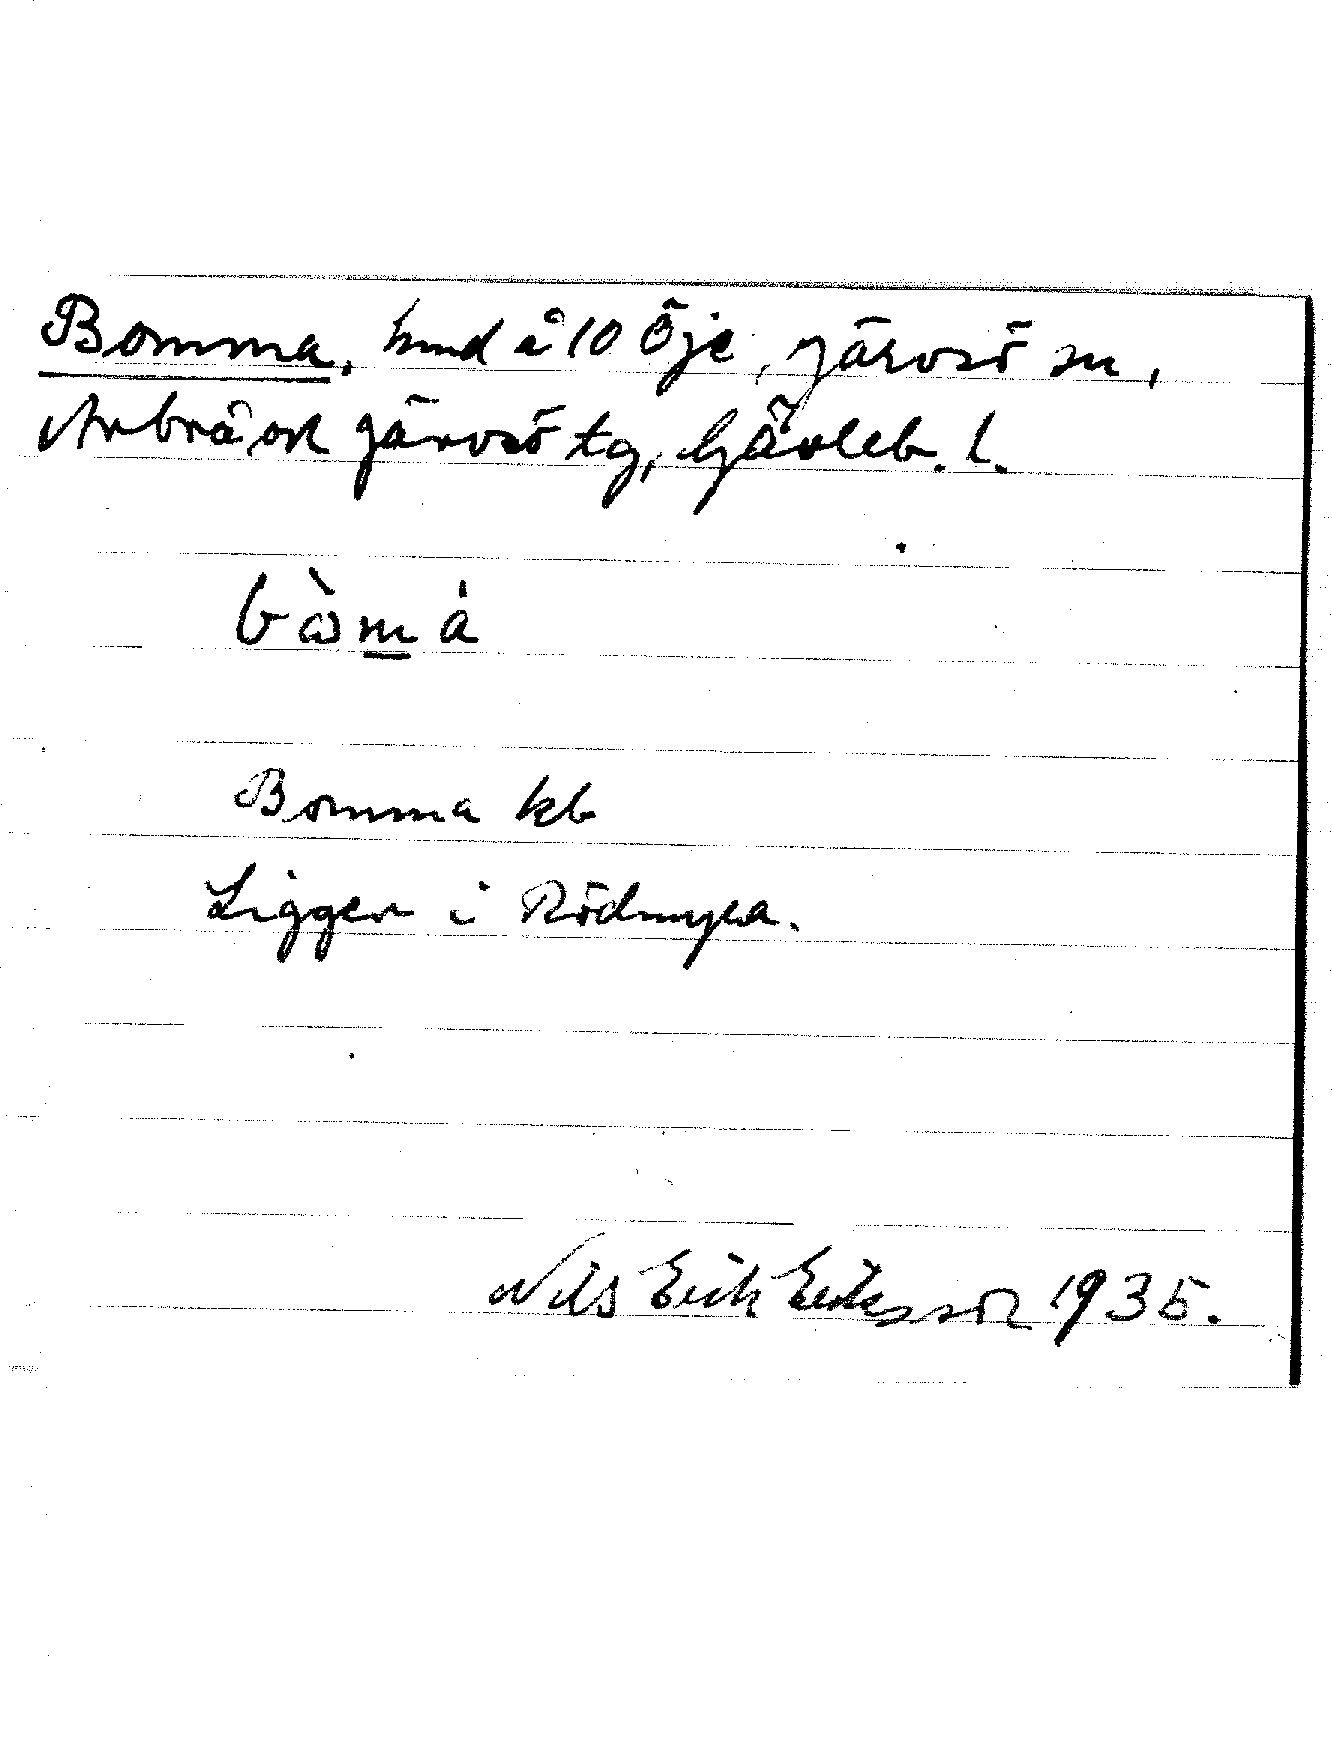 Bomma, hmd å 10 Öje, Järvsö sn,
Arbrå och Järvsö tg, Gävleb. l.
bòmà
Bomma kb
Ligger i Rödmyra.
Nils Erik Eriksson 1935.